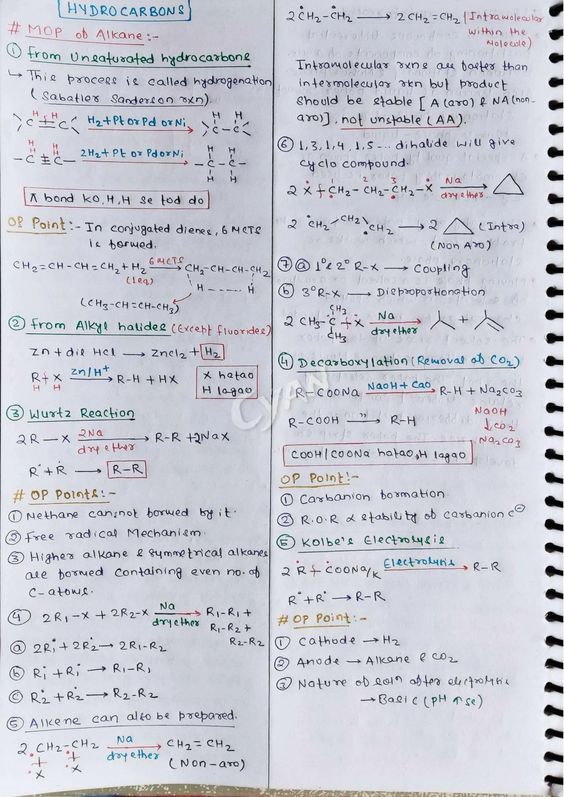 HYDROCARBONS
# MOP of Alkane:-
① From Unsaturated hydrocarbons
↳ This process is called hydrogenation
(Sabatier Sanderson rxn)
H H
>C=C< H₂+Pt or Pd or Ni → >C-C<
H H
H H H H
-C≡C- 2H₂+Pt or Pd or Ni → -C-C-
H H H H
π bond ko, H, H se tod do
OP Point:- In conjugated dienes, 6 MCTS
is formed.
CH₂=CH-CH=CH₂+H₂ 6 MCTS → CH₂-CH-CH-CH₂
(1eq) H ---- H
(CH₃-CH=CH-CH₃)
② From Alkyl halides (Except fluorides)
Zn+dil HCl → ZnCl₂+H₂
R+X Zn/H⁺ → R-H + HX
H H
X hatao
H lagao
③ Wurtz Reaction
2R-X+2Na → R-R +2NaX
dry ether
R•+R• → R-R
# OP Points:-
① Methane cannot formed by it.
② Free radical Mechanism.
③ Higher alkane & symmetrical alkanes
are formed containing even no. of
C-atoms.
④ 2R₁-X + 2R₂-X Na → R₁-R₁ +
dry ether R₁-R₂ +
R₂-R₂
ⓐ 2R₁•+2R₂• → 2R₁-R₂
ⓑ R₁•+R₁• → R₁-R₁
ⓒ R₂•+R₂• → R₂-R₂
⑤ Alkene can also be prepared.
2 CH₂-CH₂ Na → CH₂=CH₂
X X dry ether (Non-aro)
2 •CH₂-•CH₂ → 2CH₂=CH₂ (Intramolecular
within the
Molecule)
Intramolecular rxns are faster than
intermolecular rxn but product
should be stable [A (aro) & NA (non-
aro)], not unstable (AA).
⑥ 1,3, 1,4, 1,5-... dihalide will give
cyclo compound.
2 X+CH₂-CH₂-CH₂-X Na →
1 2 3 dry ether
2 •CH₂-CH₂-•CH₂ → 2 (Intra)
(Non Aro)
⑦ ⓐ 1°&2° R-X → Coupling
ⓑ 3°R-X → Disproportionation
CH₃
2 CH₃-C+X Na → +
CH₃ dry ether
④ Decarboxylation (Removal of CO₂)
R-COONa NaOH+CaO → R-H+Na₂CO₃
R-COOH " → R-H
NaOH
↓CO₂
Na₂CO₃
COOH/COONa hatao, H lagao
OP Point:-
① Carbanion formation
② R.O.R ∝ stability of carbanion C⊖
⑤ Kolbe's Electrolysis
2 R+COONa/K Electrolysis → R-R
R•+R• → R-R
# OP Point:-
① Cathode → H₂
② Anode → Alkane & CO₂
③ Nature of soln after electrolysis
→ Basic (pH ↑se)
CYAN